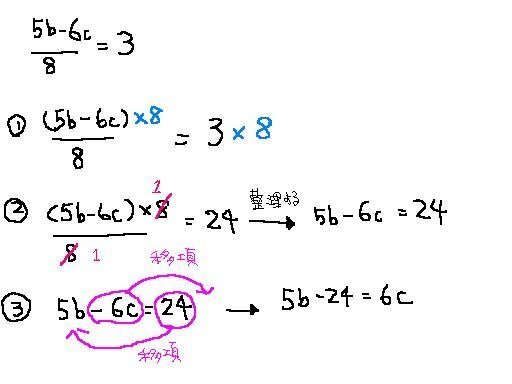 (5b-6c)/8 = 3
① (5b-6c)×8/8 = 3×8
② (5b-6c)×8/8 = 24 整理する → 5b-6c = 24
1
1
移項
③ 5b-6c=24 → 5b-24=6c
移項